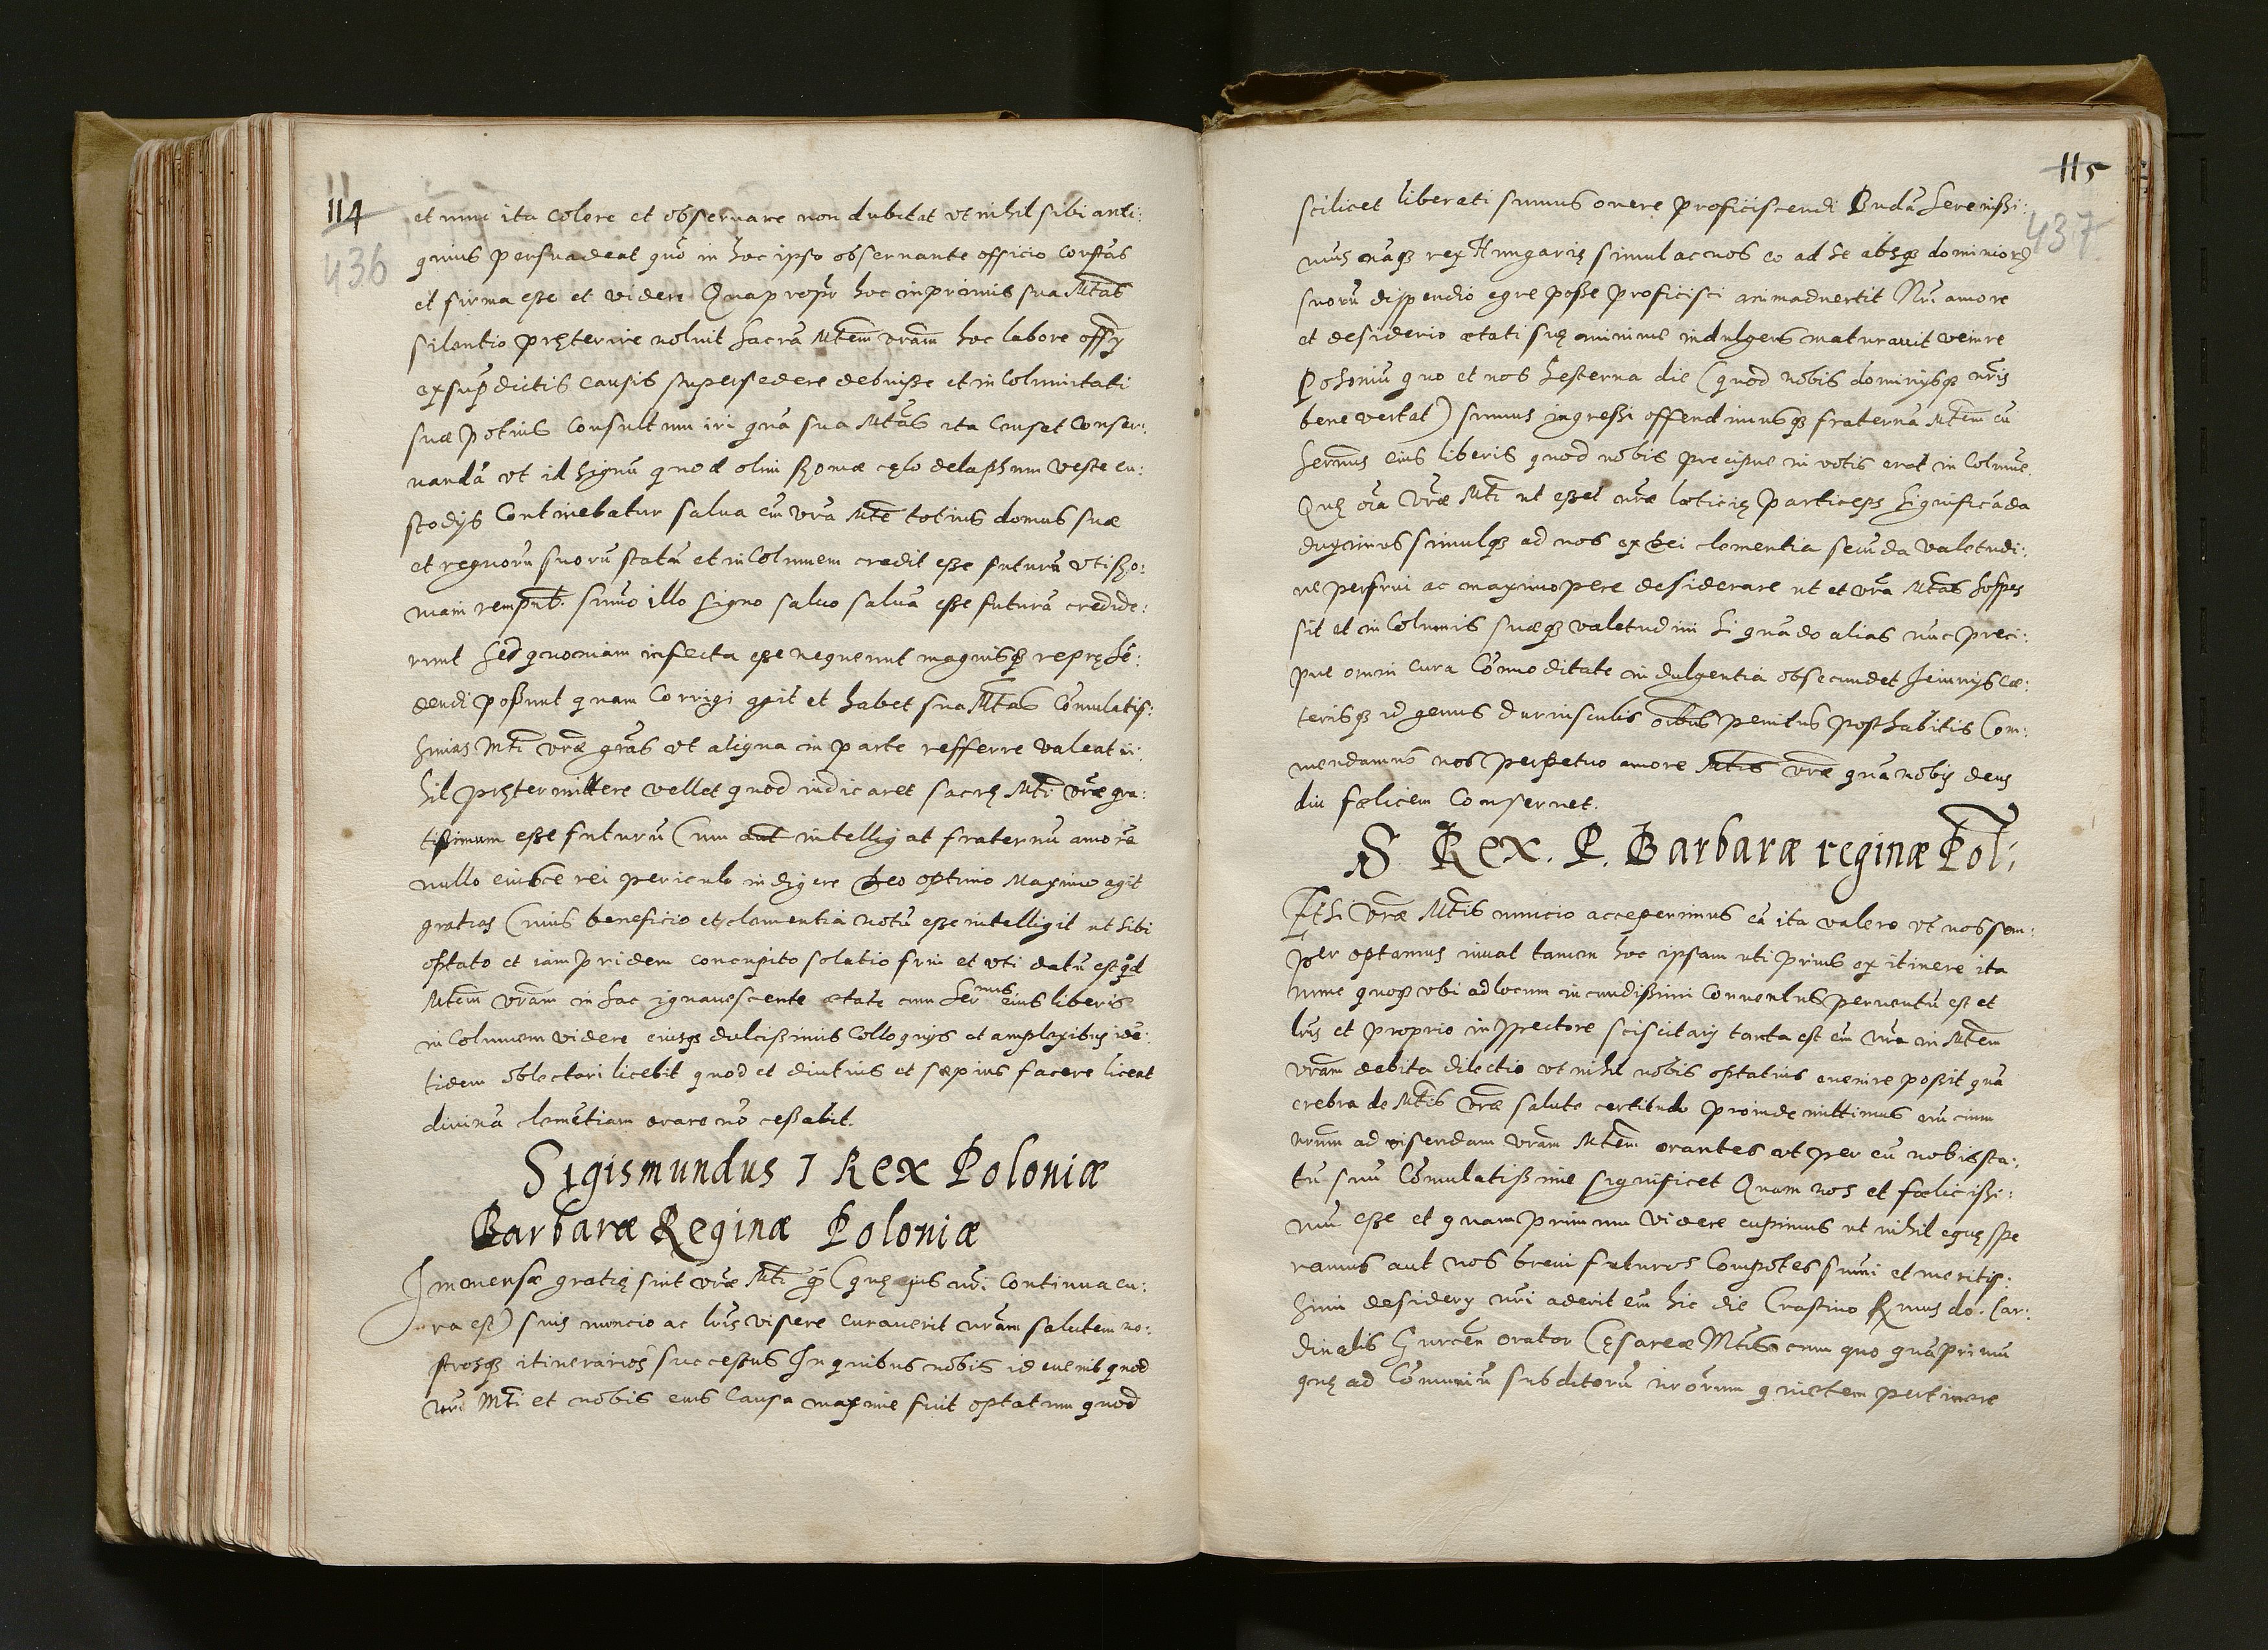 114
436
et nunc ita colere et obseruare non dubitat vt nihil sibi anti:
quius persuadeat quo in hoc ipso obseruante officio constas
et firma esse et videre Quapropr hoc inprimis sua Mtas
silentio pręterire noluit Sacra Mtem vram hoc labore
ex sup dictis causis supersedere debuisse et incolumitati
suæ potius consultum iri qua sua Mtas ita censet conser:
uandã vt id signũ quod olim Romæ cęlo delapsum Vestæ cu:
stodijs continebatur salua em vra Mte totius domus suæ
et regnorũ suorũ statũ et incolumem credit esse futurũ vti Ro:
mani rempub. suũo illo signo saluo saluã esse futurã credide:
runt Sed quoniam infecta esse nequeunt magnisq repręhẽ:
dendi possunt quam corrigi agit et habet sua Mtas Cumulatis:
simas Mti vræ gras vt aliqua in parte refferre valeat ni:
hil prętermittere vellet quod indicaret sacrę Mti vræ gra:
tissimum esse futurũ Cum aut intelligat fraternũ amorẽ
nullo eiusce rei periculo indigere Deo optimo Maximo agit
gratias Cuius beneficio et clementia notũ esse intelligit ut sibi
optato et iam pridem concupito solatio frui et vti datũ est qd
Mtem vram in hac ignauescente ætate cum Sermis eius liberis
incolumem videre eiusq dulcissimis colloquijs et amplexibus idẽ:
tidem oblectari licebit quod et diutius et sæpius facere liceat
diuinã clemẽtiam orare nõ cessabit.
Sigismundus I Rex Poloniæ
Barbaræ Reginæ Poloniæ
Immensæ gratię sint vræ Mti q (quę eius nri continua cu:
ra est) suis nuncio ac lris visere curauerit nram salutem no:
strosq itinerarios successus In quibus nobis id euenit quod
vræ Mti et nobis eius causa maxime fuit optatum quod
115
437
scilicet liberati sumus onere proficiscendi Budã Serenissi:
mus naq rex Hungarię simul ac nos eo ad se absq dominiorũ
suorũ dispendio egre posse proficisci animaduertit Nri amore
et desiderio ætati suę minime indulgens maturauit venire
Posoniũ quo et nos hesterna die (quod nobis dominijsq nris
bene vertat) sumus ingressi offendimusq fraternã Mtem cũ
Sermis eius liberis quod nobis precipue in votis erat incolumẽ.
Quę oĩa Vræ Mti ut esset nræ læticię particeps significãda
duximus simulq ad nos ex Dei clementia secũda valetudi:
ne perfrui ac maximopere desiderare ut et vra Mtas sospes
sit et incolumis suæq valetudini si quãdo alias nũc preci:
pue omni cura cõmoditate indulgentia obsecundet Ieiunijs cæ:
terisq id genus duriusculis oĩbus penitus posthabitis Com:
mendamus nos perpetuo amore Mtis vræ quã nobis deus
diu fælicem conseruet.
S Rex. P. Barbaræ reginæ Pol:
Etsi vræ Mtis nuncio acceperimus eã ita valere vt nos sem:
per optamus iuuat tamen hoc ipsum uti prius ex itinere ita
nunc quoq vbi ad locum iucundissimi conuentus peruentũ est et
lris et proprio inspectore sciscitari tanta est em nra in Mtem
vram debita dilectio vt nihil nobis optatius euenire possit quã
crebra de Mtis vræ salute certitudo proinde mittimus nũcium
nrum ad visendam vram Mtem orantes ut per eũ nobis sta:
tũ suũ Cũmulatissime significet Quam nos et fœlicissi:
mũ esse et quamprimum videre cupimus ut nihil eque spe
ramus aut nos breui futuros compotes summi et meritis:
simi desiderij nri aderit em hic die Crastino Rmus do. Car:
dinalis Gurcen orator Cęsareæ Mtis cum quo quãprimũ
quę ad Cõmuniũ subditorũ nrorum quietem pertinere